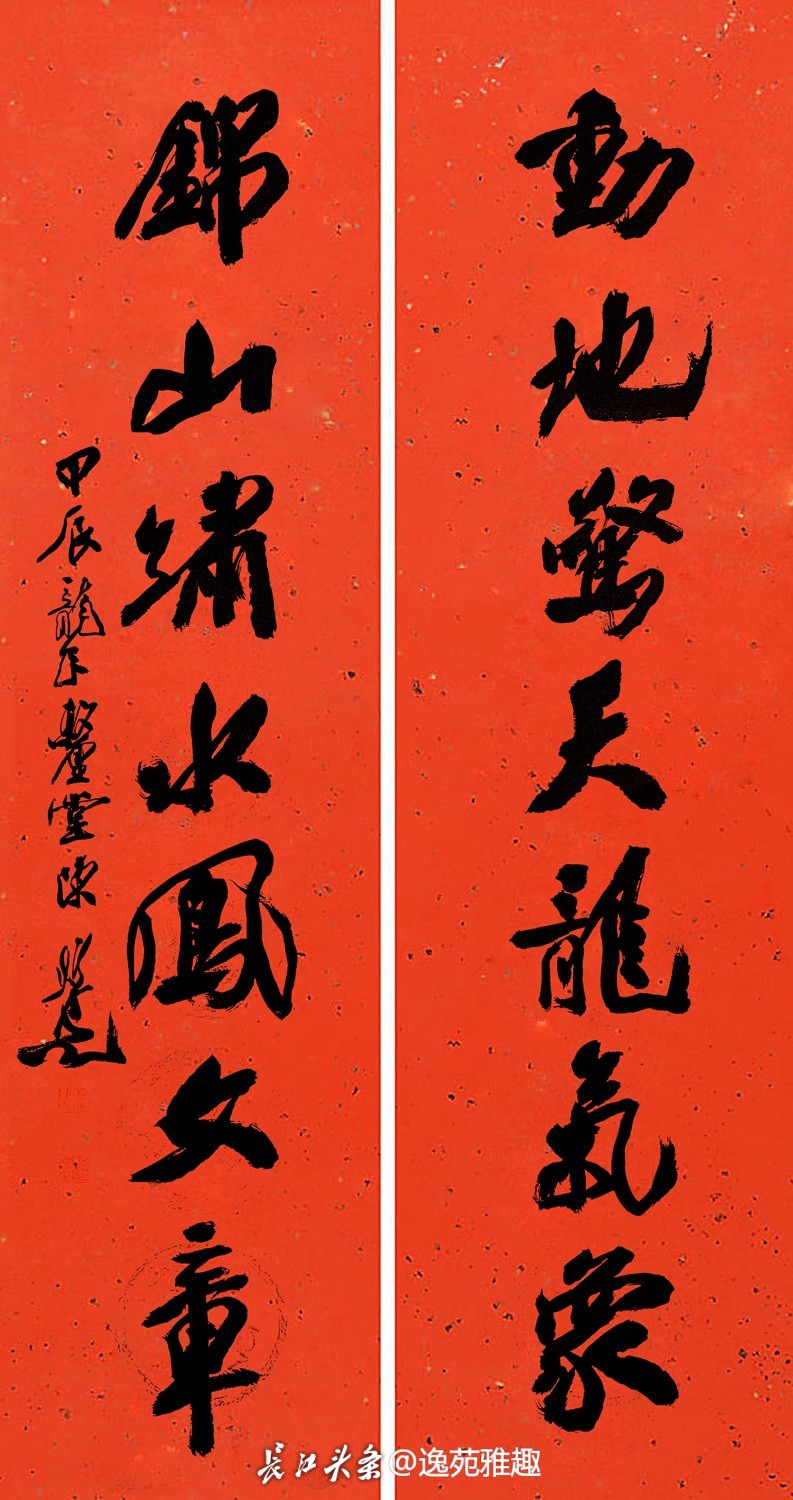 動地驚天龍氣象
錦山繡水鳳文章
甲辰龍年鰲堂陳
長江头条@逸苑雅趣